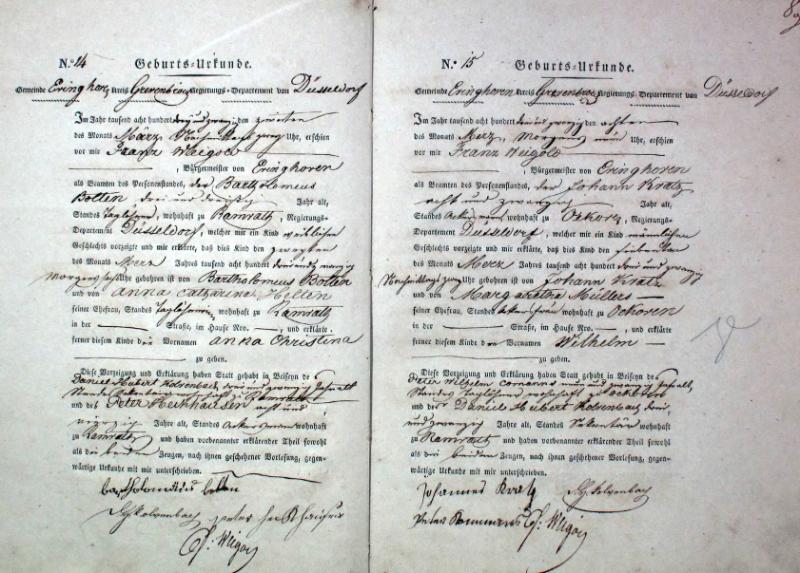 N.º 14 Geburts-Urkunde.
Gemeinde Eringhoven Kreis Grevenbroich Regierungs-Departement von Düsseldorf
Im Jahr tausend acht hundert drei und zwanzig den zweiten
des Monats März, Uhr, erschien
vor mir Franz Weigold
, Bürgermeister von Eringhoven
als Beamten des Personenstandes, der Bartholomeus
Bolten, drei und dreißig Jahr alt,
Standes Taglöhner, wohnhaft zu Ramrath, Regierungs-
Departement Düsseldorf, welcher mir ein Kind weiblichen
Geschlechts vorzeigte und mir erklärte, daß dies Kind den zweyten
des Monats Merz Jahres tausend acht hundert drei und zwanzig
Morgens Uhr gebohren ist von Bartholomeus Bolten
und von Anna Catharina Hillen
seiner Ehefrau, Standes Taglöhnerin, wohnhaft zu Ramrath
in der — Straße, im Hause Nro. —, und erklärte
ferner diesem Kinde den Vornamen Anna Christina
zu geben.
Diese Vorzeigung und Erklärung haben Statt gehabt in Beiseyn de
Daniel Hubert Holvenbach, drei und zwanzig Jahr alt
Standes zu Ramrath
und des Peter Heckhausen acht und
vierzig Jahre alt, Standes Ackersmann wohnhaft
zu Ramrath und haben vorbenannter erklärender Theil sowohl
als die beiden Zeugen, nach ihnen geschehener Vorlesung, gegen-
wärtige Urkunde mit mir unterschrieben.
bartholomäus bolten
peter heckhausen
Weigold
N.º 15 Geburts-Urkunde.
Gemeinde Eringhoven Kreis Grevenbroich Regierungs-Departement von Düsseldorf
Im Jahr tausend acht hundert drei und zwanzig den achten
des Monats Merz, Morgens neun Uhr, erschien
vor mir Franz Weigold
, Bürgermeister von Eringhoven
als Beamten des Personenstandes, der Johann Kratz
acht und zwanzig Jahr alt,
Standes Ackersmann wohnhaft zu Ockoven, Regierungs-
Departement Düsseldorf, welcher mir ein Kind männlichen
Geschlechts vorzeigte und mir erklärte, daß dies Kind den siebenten
des Monats Merz Jahres tausend acht hundert drei und zwanzig
Nachmittags zwey Uhr gebohren ist von Johann Kratz
und von Margaretha Müllers
seiner Ehefrau, Standes Ackersfrau wohnhaft zu Ockoven
in der — Straße, im Hause Nro. —, und erklärte
ferner diesem Kinde den Vornamen Wilhelm
zu geben.
Diese Vorzeigung und Erklärung haben Statt gehabt in Beiseyn de
Peter Wilhelm Comanns neun und zwanzig Jahr alt,
Standes Taglöhner wohnhaft zu Ockoven
und des Daniel Hubert Holvenbach drei
und zwanzig Jahre alt, Standes Sekretär wohnhaft
zu Ramrath und haben vorbenannter erklärender Theil sowohl
als die beiden Zeugen, nach ihnen geschehener Vorlesung, gegen-
wärtige Urkunde mit mir unterschrieben.
Johannes Kratz
Peter Weigold